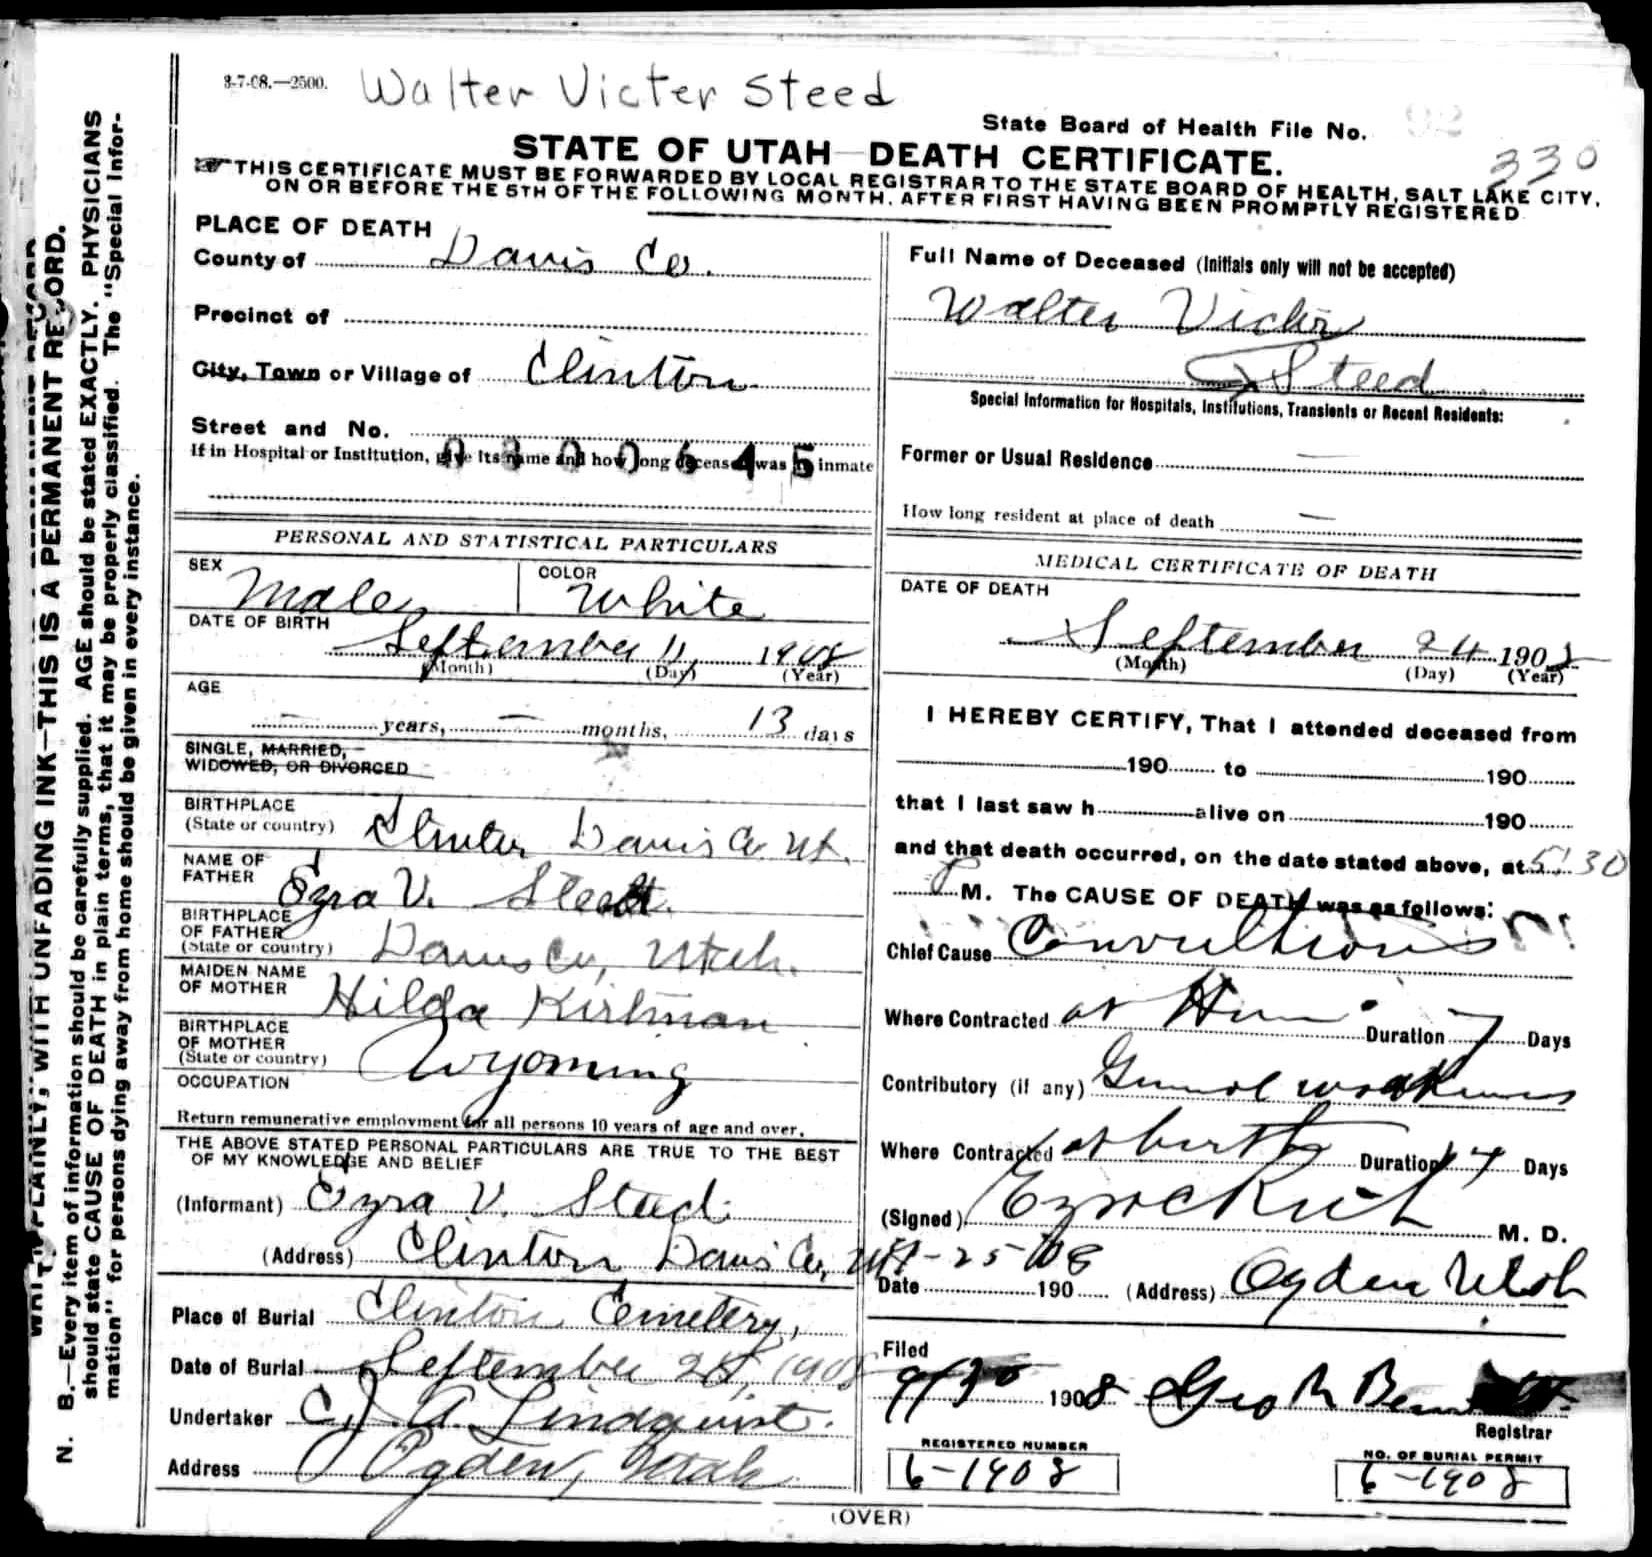 3-7-08.—2500.
Walter Victer Steed
State Board of Health File No.
330
STATE OF UTAH—DEATH CERTIFICATE.
THIS CERTIFICATE MUST BE FORWARDED BY LOCAL REGISTRAR TO THE STATE BOARD OF HEALTH, SALT LAKE CITY,
ON OR BEFORE THE 5TH OF THE FOLLOWING MONTH, AFTER FIRST HAVING BEEN PROMPTLY REGISTERED
PLACE OF DEATH
County of Davis Co.
Precinct of
City, Town or Village of Clinton
Street and No.
If in Hospital or Institution, give its name and how long deceased was inmate
0300645
PERSONAL AND STATISTICAL PARTICULARS
SEX Male
COLOR White
DATE OF BIRTH
September 11 1908
(Month) (Day) (Year)
AGE
— years, — months, 13 days
SINGLE, MARRIED,
WIDOWED, OR DIVORCED
BIRTHPLACE
(State or country) Davis Co. Ut.
NAME OF
FATHER Ezra V. Steed
BIRTHPLACE
OF FATHER
(State or country) Davis Co, Utah.
MAIDEN NAME
OF MOTHER Hilda
BIRTHPLACE
OF MOTHER
(State or country) Wyoming
OCCUPATION
Return remunerative employment for all persons 10 years of age and over.
THE ABOVE STATED PERSONAL PARTICULARS ARE TRUE TO THE BEST
OF MY KNOWLEDGE AND BELIEF
(Informant) Ezra V. Steed
(Address) Clinton Davis Co, Ut
Place of Burial Clinton Cemetery,
Date of Burial September 1908
Undertaker C. J. A. Lindquist.
Address Ogden, Utah
Full Name of Deceased (Initials only will not be accepted)
Walter Victor
Steed
Special Information for Hospitals, Institutions, Transients or Recent Residents:
Former or Usual Residence —
How long resident at place of death —
MEDICAL CERTIFICATE OF DEATH
DATE OF DEATH
September 24 1908
(Month) (Day) (Year)
I HEREBY CERTIFY, That I attended deceased from
190 to 190
that I last saw h alive on 190
and that death occurred, on the date stated above, at 5:30
P M. The CAUSE OF DEATH was as follows:
Chief Cause Convultions
Where Contracted at Duration 7 Days
Contributory (if any) General weakness
Where Contracted at birth Duration Days
(Signed) M. D.
25-08
Date 190 (Address) Ogden Utah
Filed
9/30 1908 Geo R
Registrar
REGISTERED NUMBER
6-1908
NO. OF BURIAL PERMIT
6-1908
(OVER)
WRITE PLAINLY, WITH UNFADING INK—THIS IS A PERMANENT RECORD.
N. B.—Every item of information should be carefully supplied. AGE should be stated EXACTLY. PHYSICIANS
should state CAUSE OF DEATH in plain terms, that it may be properly classified. The "Special Infor-
mation" for persons dying away from home should be given in every instance.